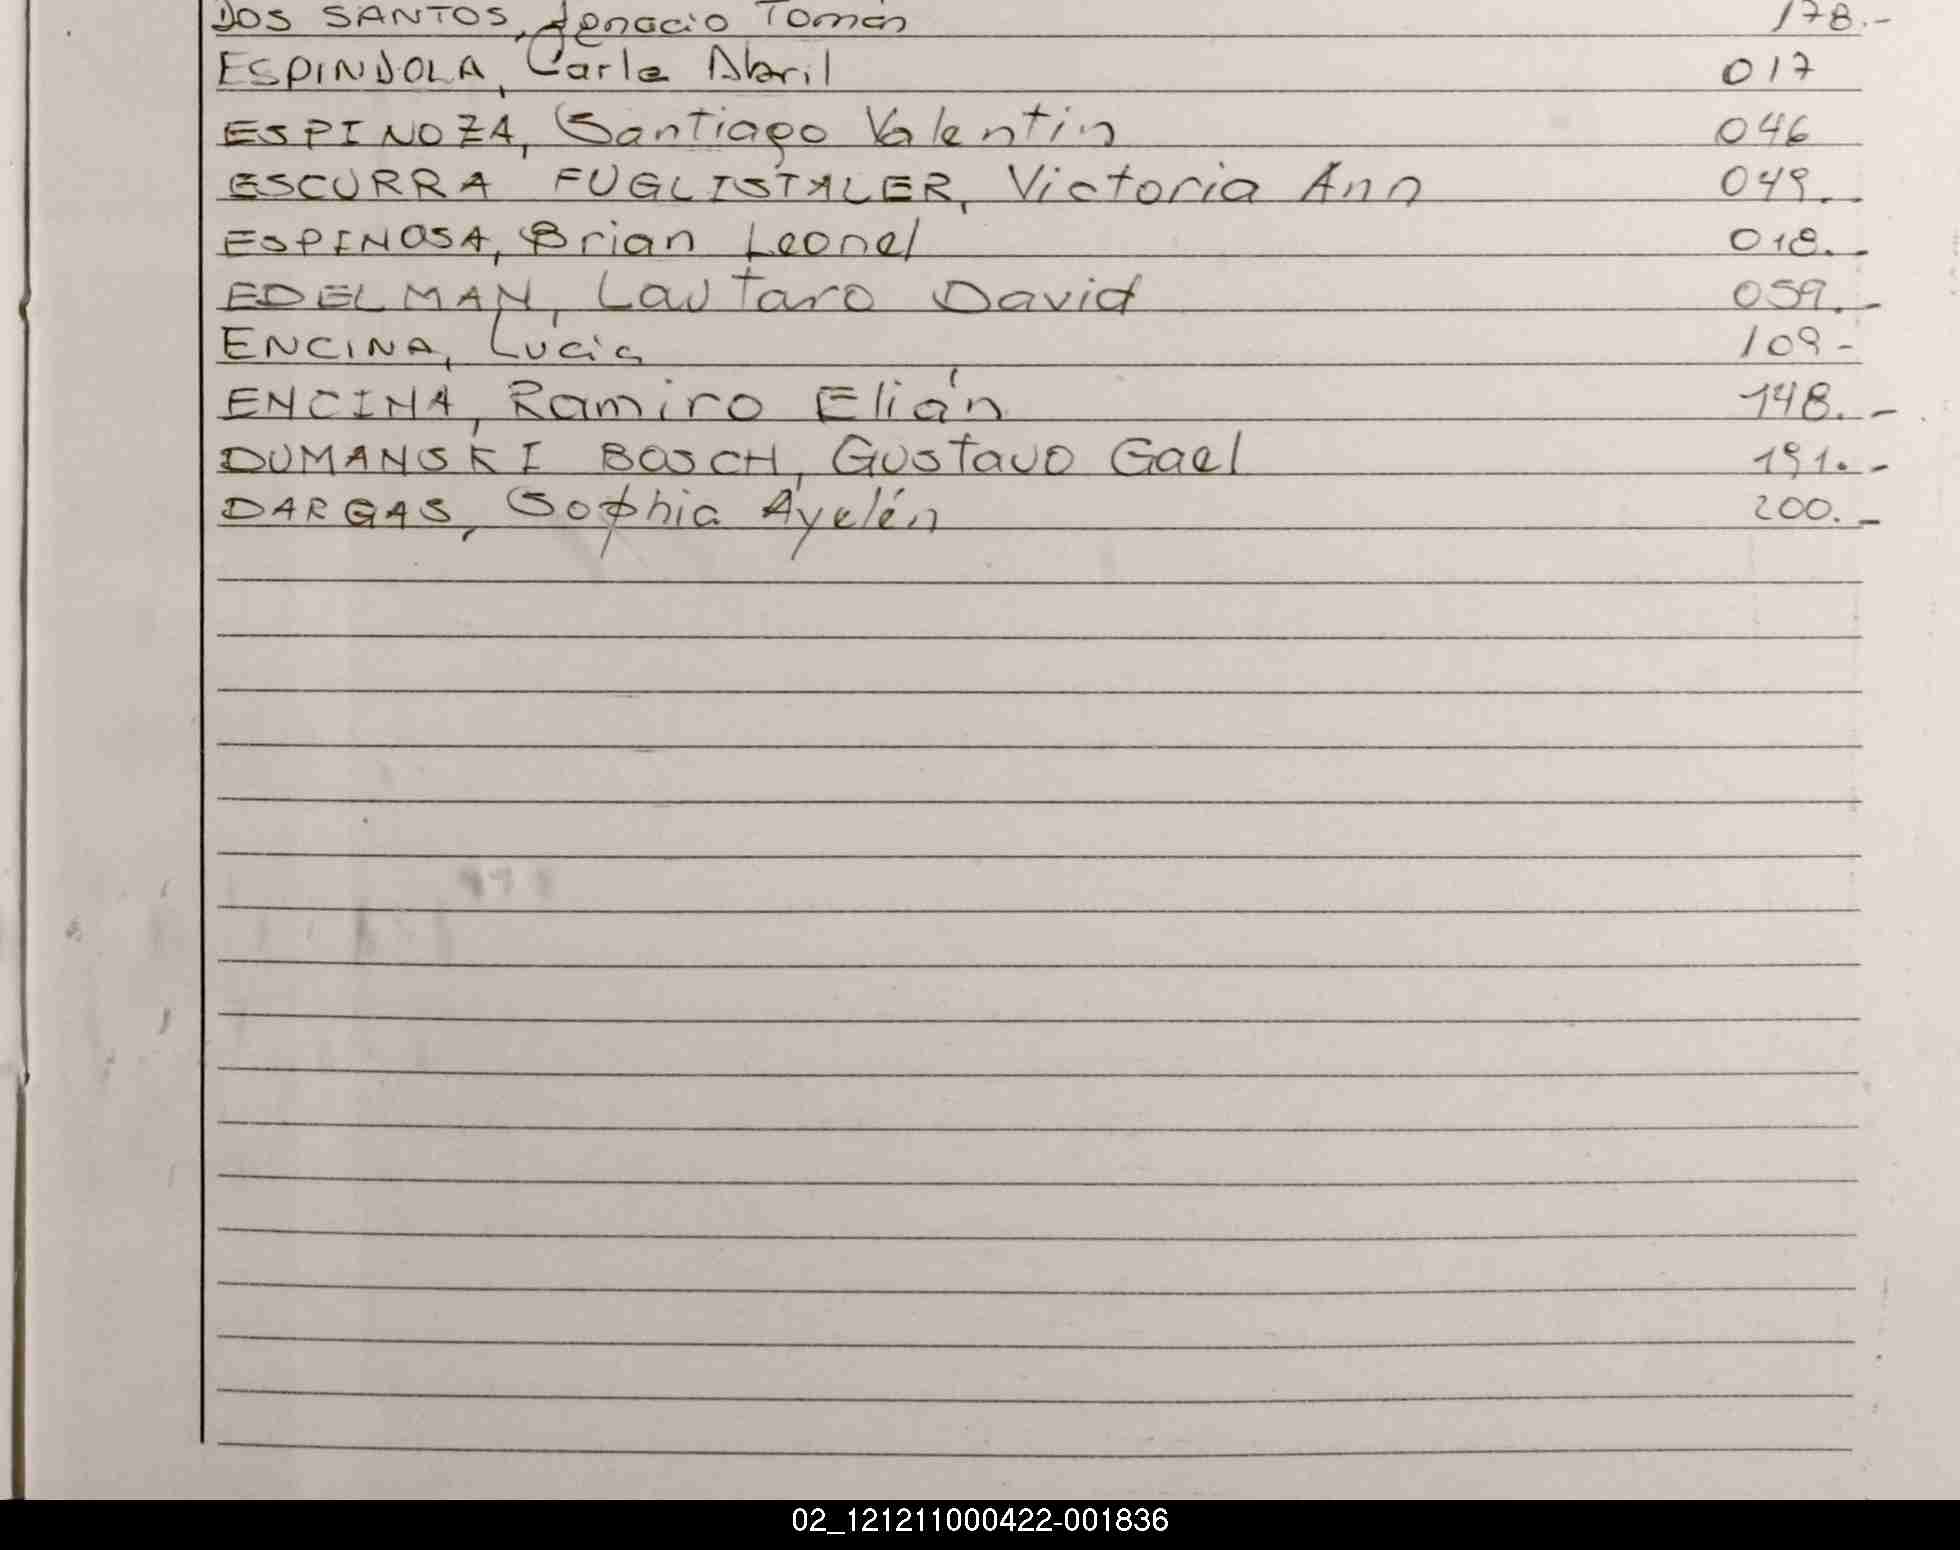 DOS SANTOS, Ignacio Tomás 178.-
ESPINDOLA, Carla Abril 017
ESPINOZA, Santiago Valentin 046
ESCURRA FUGLISTALER, Victoria Ann 049.-
ESPINOSA, Brian Leonel 018.-
EDELMAN, Lautaro David 059.-
ENCINA, Lucia 109-
ENCINA, Ramiro Elián 148.-
DUMANSKI BOSCH, Gustavo Gael 191.-
DARGAS, Sophia Ayelén 200.-
02_121211000422-001836